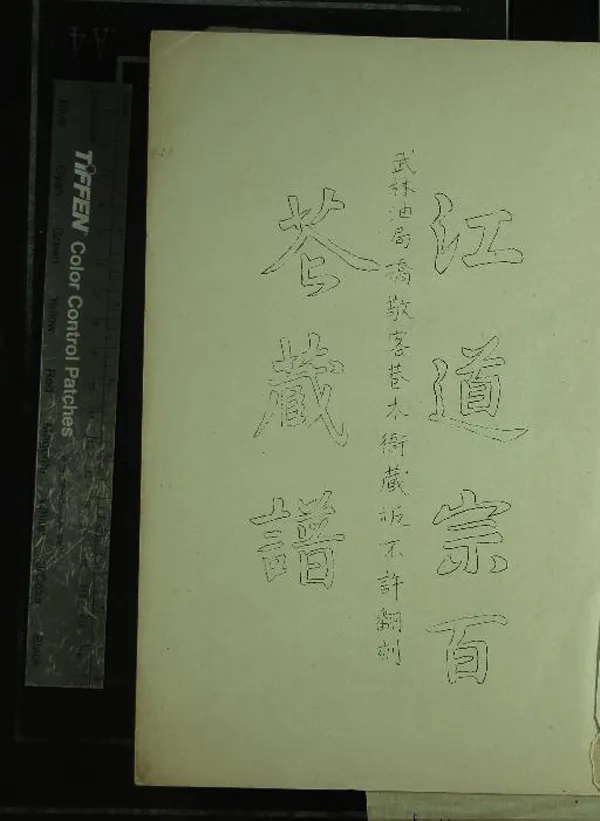 江道宗百
武林油局橋敬客巷本衙藏板不許翻刻
花藏譜
TIFFEN Color Control Patches
Blue Cyan Green Yellow Red Magenta White 3/Color Black